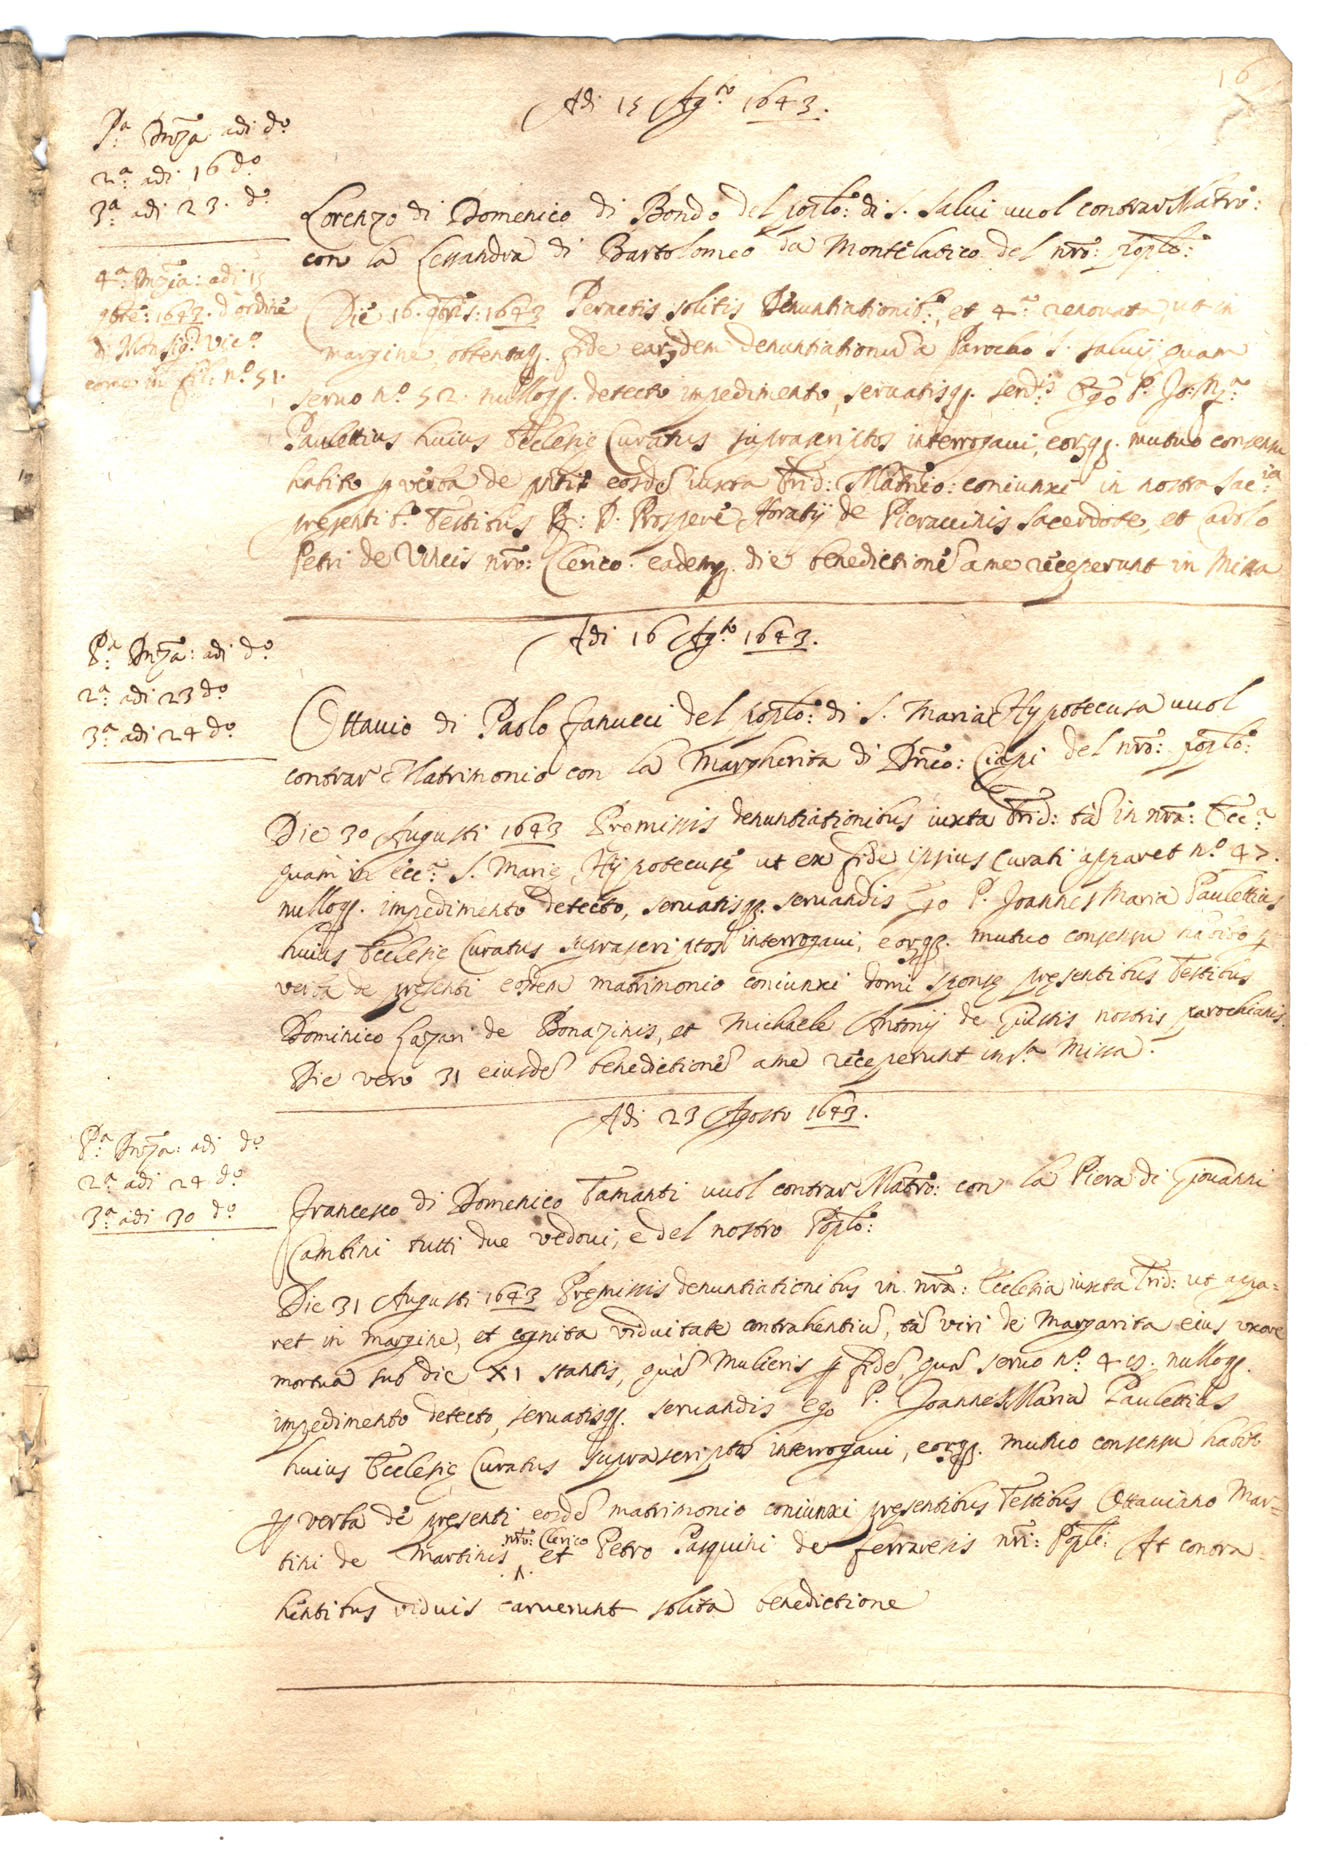 16
Adi 15 Ag.to 1643.
P.a Dnza adi d.o
2.a adi 16 d.o
3.a adi 23. d.o
Lorenzo di Domenico di Bondo del poplo: di S. Salui uuol contrar Matro:
con la Lessandra di Bartolomeo da Montelatico del nro: poplo:
4.a Dnzia: adi 15
9bre: 1643. d'ordine
di Monsig.r Vic.o
come in fil: n.o 51.
Die 16. 9bris: 1643 Peractis solitis Denuntiationib.s, et 4.a renouata ut in
margine, obtentaq. fide earundem denuntiationū a Parocho S. Saluij quam
seruo n.o 52. nulloq. detecto impedimento, seruatisq. serd.is Ego P. Jo: M.a
Paulettius huius Ecclesię Curatus suprascriptos interrogaui, eorq. mutuo consensu
habito p verba de pnti eosdē iuxta Trid: Matrio: coniunxi in nostra Sac.ia
presentib.s Testibus R: D: Prospero Horatij de Pieraccinis Sacerdote, et Carolo
Petri de Vlleis nro: Clerico. eademq. die benedictionē a me receperunt in Missa
Adi 16 Ag.to 1643.
P.a Dnza: adi d.o
2.a adi 23 d.o
3.a adi 24 d.o
Ottauio di Paolo Fanucci del poplo: di S. Maria Hypotecusa uuol
contrar Matrimonio con la Margherita di Dnico: Ciapi del nro: poplo:
Die 30 Augusti 1643 Premissis denuntiationibus iuxta Trid: tā in nra: Ecc.a
quam in ecc.a S. Marię Hypotecusę ut ex fide ipsius Curati apparet n.o 47.
nulloq. impedimento detecto, seruatisq. seruandis Ego P. Joannes Maria Paulettius
huius Ecclesię Curatus suprascriptos interrogaui, eorq. mutuo consensu habito p
verba de pręsenti eosdem matrimonio coniunxi domi sponsę pręsentibus Testibus
Dominico Lazari de Bonazinis, et Michaele Antonij de Giustis nostris parochianis.
Die vero 31 eiusdē benedictionē a me receperunt in s.a Missa.
Adi 23 Agosto 1643.
P.a Dnza: adi d.o
2.a adi 24 d.o
3.a adi 30 d.o
Francesco di Domenico Tamanti uuol contrar Matro: con la Piera di Giouanni
Cambini tutti due vedoui, e del nostro Poplo:
Die 31 Augusti 1643 Pręmissis denuntiationibus in nra: Ecclesia iuxta Trid: ut appa-
ret in margine, et cognita viduitate contrahentiū, tā viri de Margarita eius uxore
mortua sub die XI stantis, quā Mulieris p fidē, quā seruo n.o 49. nulloq.
impedimento detecto, seruatisq. seruandis ego P. Joannes Maria Paulettius
huius Ecclesię Curatus suprascriptos interrogaui, eorq. mutuo consensu habito
p verba de pręsenti eosdē matrimonio coniunxi pręsentibus Testibus Ottauiano Mar=
tini de Martinis nro: Clerico et Petro Pasquini de Ferrarensis nri: Popli: At contra=
hentibus viduis caruerunt solita benedictione